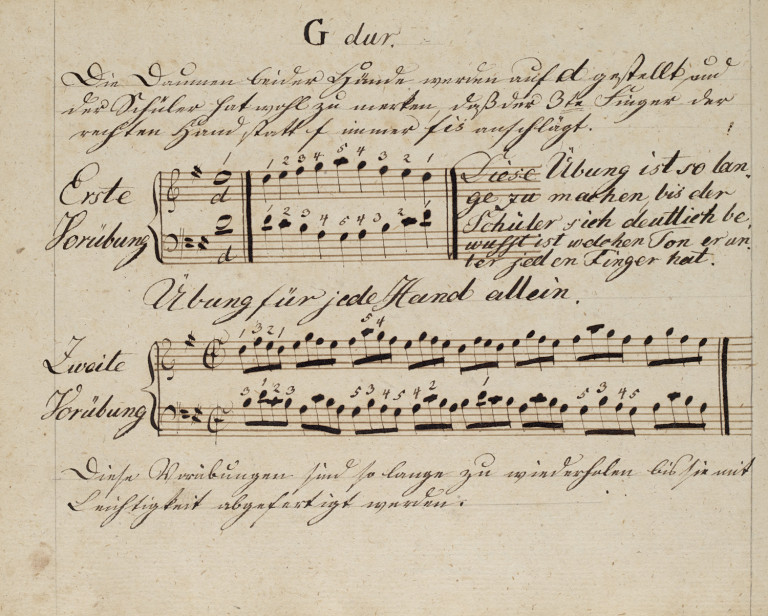 G dur.
Die Daumen beider Hände werden auf d gestellt und
der Schüler hat wohl zu merken, daß der 3te Finger der
rechten Hand statt f immer fis anschlägt.
1 1 2 3 4 5 4 3 2 1
Erste
Vorübung
d
Diese Übung ist so lan-
ge zu machen bis der
Schüler sich deutlich be-
wusst ist welchen Ton er un-
ter jeden Finger hat.
1 1 2 3 4 5 4 3 2 1
d
Übung für jede Hand allein.
1 3 2 1 5 4
Zweite
Vorübung
3 1 2 3 5 3 4 5 4 2 1 5 3 4 5
Diese Vorübungen sind so lange zu wiederholen bis sie mit
Leichtigkeit abgefertigt werden.